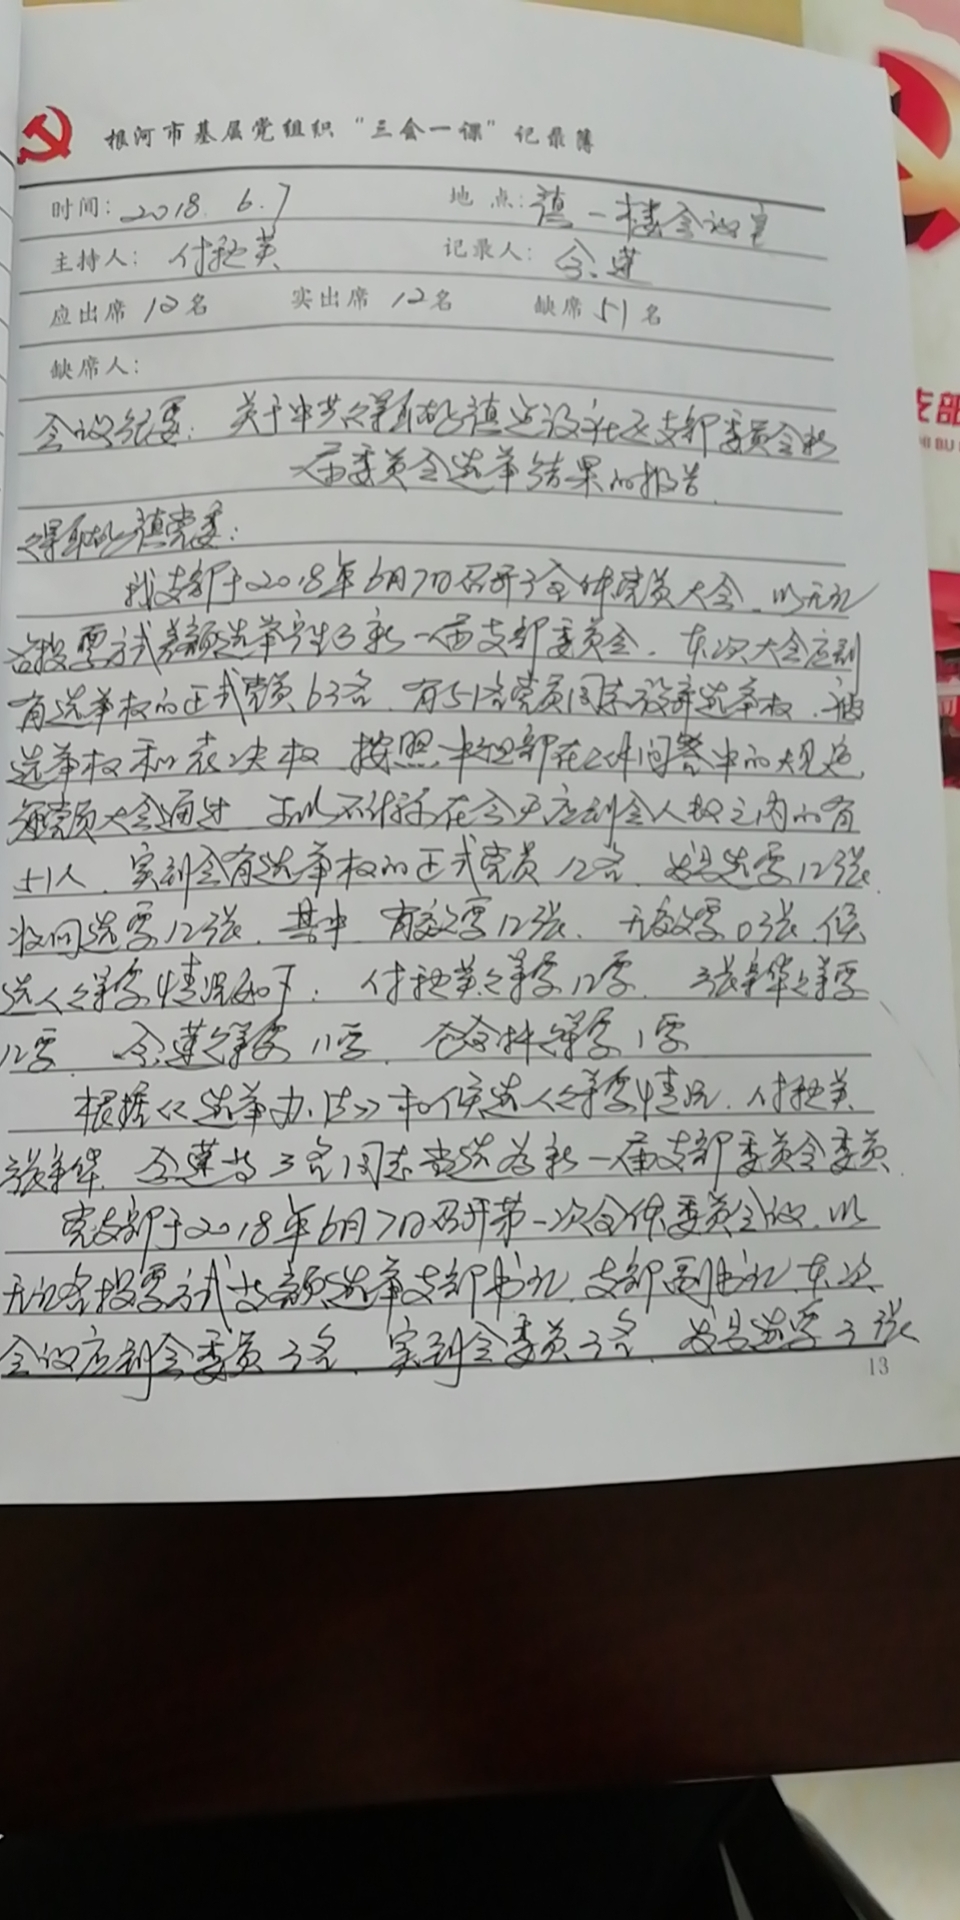 根河市基层党组织“三会一课”记录簿
时间: 2018 6.7 地点: 镇一楼会议室
主持人: 付艳英 记录人: 莲
应出席 12名 实出席 12名 缺席 51名
缺席人:
会议纪要: 关于中共得耳布尔镇建设社区支部委员会新
一届委员会选举结果的报告
得耳布尔镇党委:
我支部于2018年6月7日召开了全体党员大会、以无记
名投票方式差额选举产生了新一届支部委员会、本次大会应到
有选举权的正式党员63名、有51名党员同志放弃选举权、被
选举权和表决权 按照中组部在 问答中的规定、
经党员大会通过 可以不计算在今天应到会人数之内的有
51人、实到会有选举权的正式党员12名、发出选票12张、
收回选票12张、其中、有效票12张、无效票0张、候
选人得票情况如下: 付艳英得票12票、张华得票
12票、莲得票11票、得票1票
根据《选举办法》和候选人得票情况、付艳英
张华、莲等3名同志当选为新一届支部委员会委员、
党支部于2018年6月7日召开第一次全体委员会议、以
无记名投票方式等额选举支部书记、支部副书记、本次
会议应到会委员3名、实到会委员3名、发出选票3张
13
支部